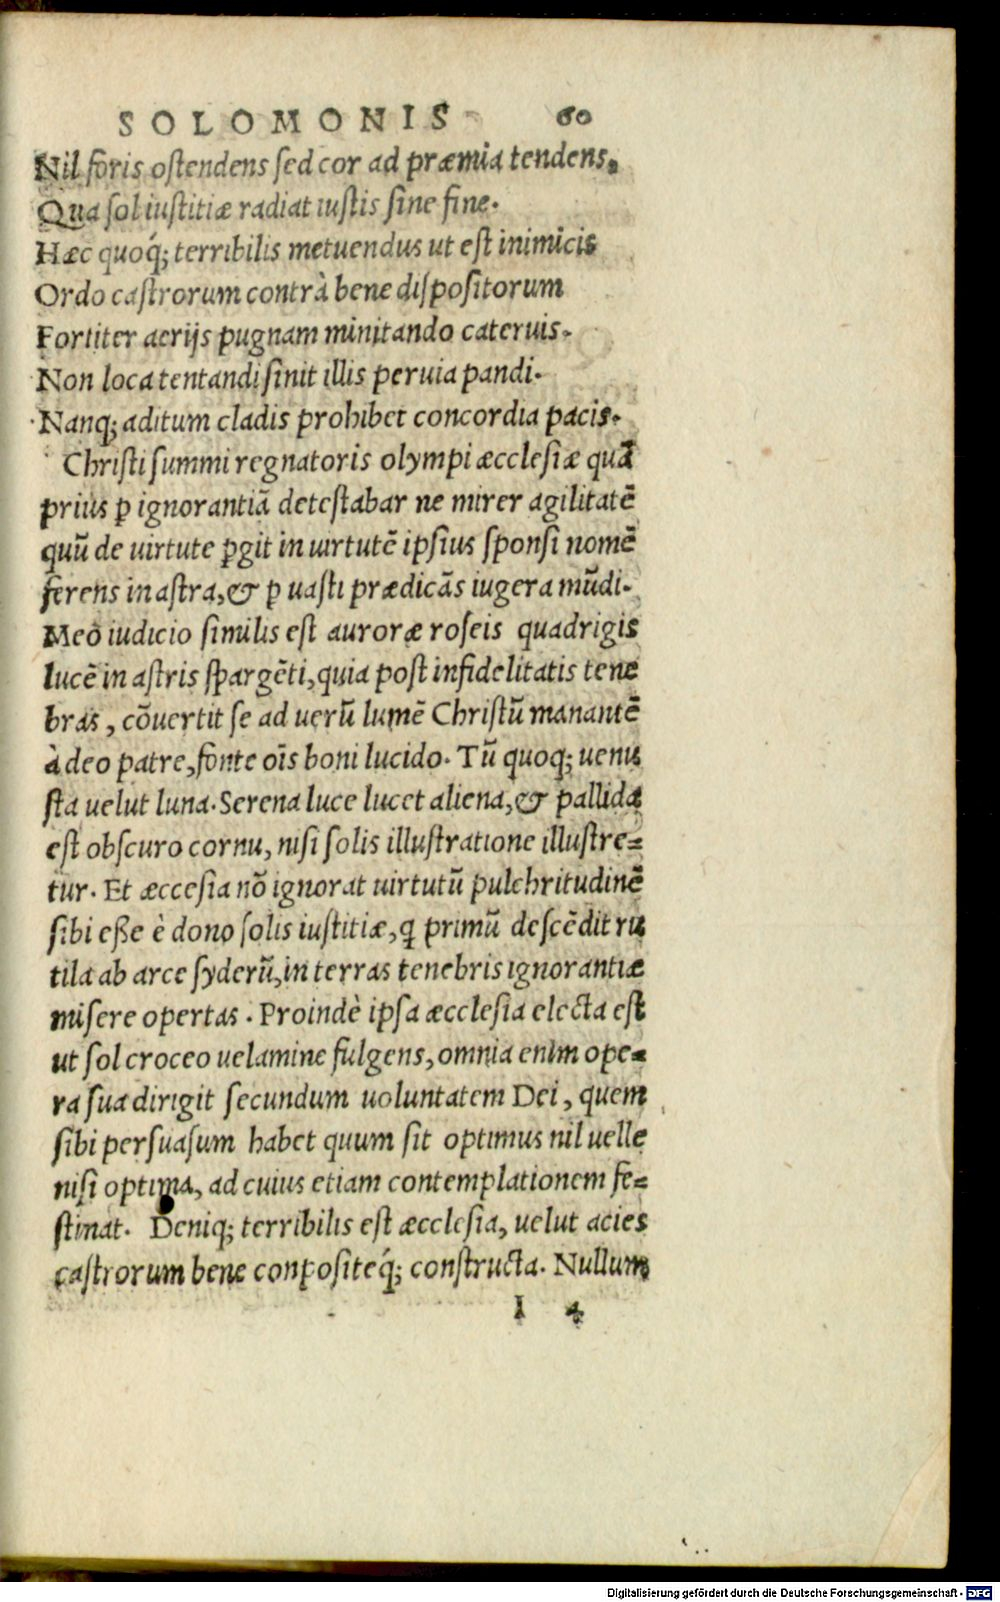 SOLOMONIS 60
Nil foris ostendens sed cor ad præmia tendens.
Qua sol iustitiæ radiat iustis sine fine.
Hæc quoq́; terribilis metuendus ut est inimicis
Ordo castrorum contrà bene dispositorum
Fortiter aerijs pugnam minitando cateruis.
Non loca tentandi sinit illis peruia pandi.
Nanq; aditum cladis prohibet concordia pacis.
Christi summi regnatoris olympi æcclesiæ quā
prius ꝑ ignorantiā detestabar ne mirer agilitatē
quū de uirtute ꝑgit in uirtutē ipsius sponsi nomē
ferens in astra, & ꝑ uasti prædicās iugera mūdi.
Meo iudicio similis est auroræ roseis quadrigis
lucē in astris spargēti, quia post infidelitatis tene
bras, cōuertit se ad uerū lumē Christū manantē
à deo patre, fonte oīs boni lucido. Tū quoq; uenu
sta uelut luna. Serena luce lucet aliena, & pallida
est obscuro cornu, nisi solis illustratione illustre=
tur. Et æccesia nō ignorat uirtutū pulchritudinē
sibi eße è dono solis iustitiæ, ꝗ primū descēdit ru
tila ab arce syderū, in terras tenebris ignorantiæ
misere opertas. Proindè ipsa æcclesia electa est
ut sol croceo uelamine fulgens, omnia enim ope=
ra sua dirigit secundum uoluntatem Dei, quem
sibi persuasum habet quum sit optimus nil uelle
nisi optima, ad cuius etiam contemplationem fe=
stinat. Deniq; terribilis est æcclesia, uelut acies
castrorum bene conpositeq́; constructa. Nullum
I 4
Digitalisierung gefördert durch die Deutsche Forschungsgemeinschaft - DFG